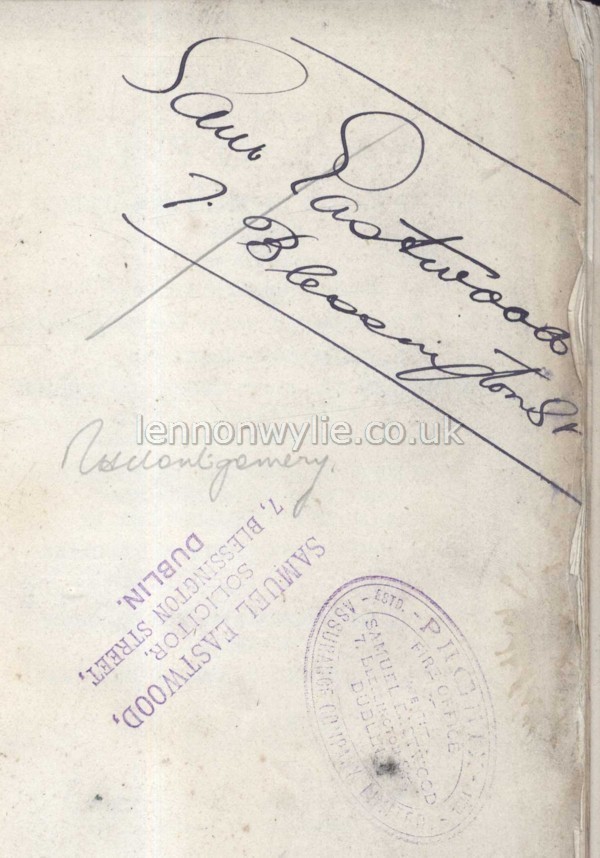 Saml Eastwood
7. Blessington St
lennonwylie.co.uk
Montgomery.
SAMUEL EASTWOOD,
SOLICITOR,
7, BLESSINGTON STREET,
DUBLIN.
ESTD.
ASSURANCE COMPANY LIMITED
FIRE OFFICE
SAMUEL EASTWOOD
7. BLESSINGTON
DUBLIN